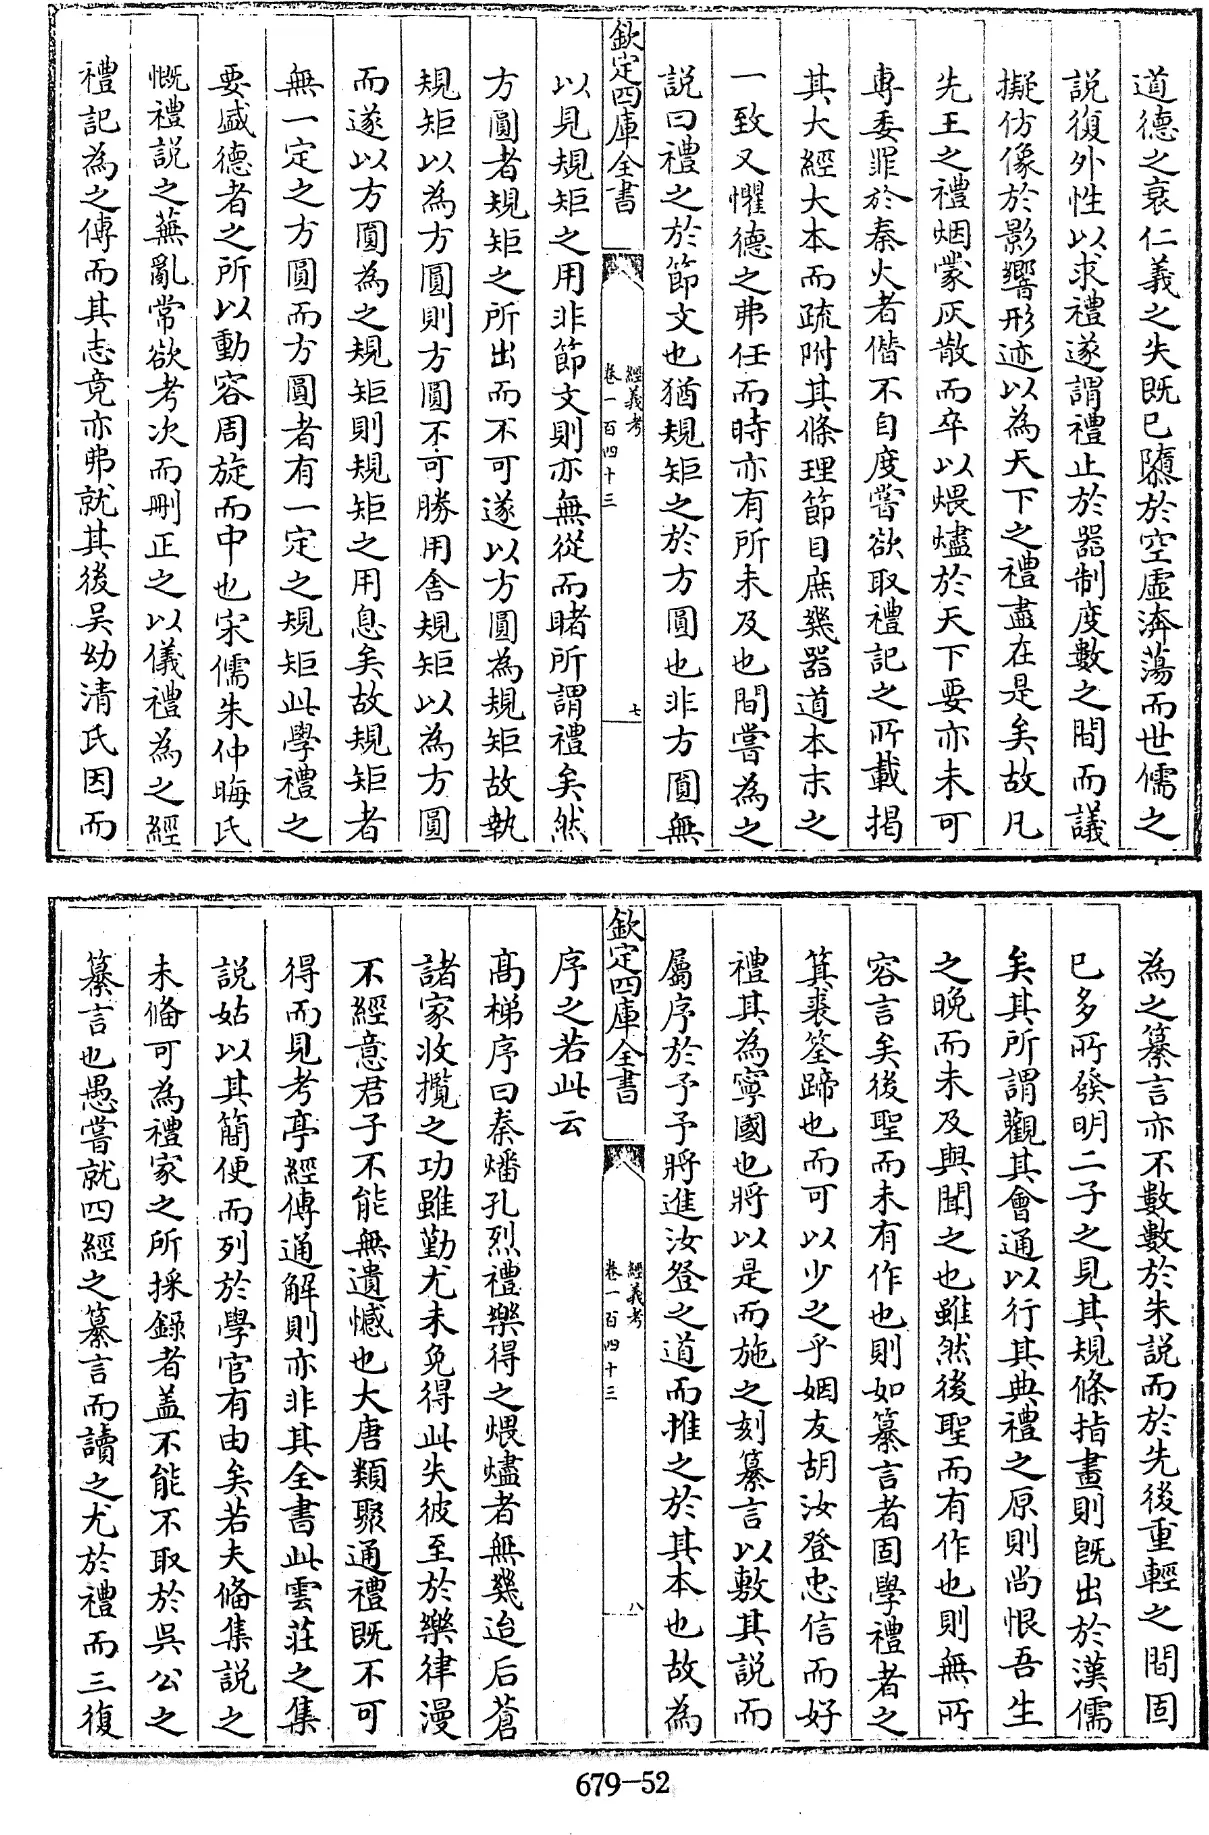 道德之衰仁義之失既已隳於空虛漭蕩而世儒之
説復外性以求禮遂謂禮止於器制度數之間而議
擬仿像於影響形迹以為天下之禮盡在是矣故凡
先王之禮烟蒙灰散而卒以煨燼於天下要亦未可
專委罪於秦火者偕不自度嘗欲取禮記之所載揭
其大經大本而疏附其條理節目庶幾器道本末之
一致又懼德之弗任而時亦有所未及也間嘗為之
説曰禮之於節文也猶規矩之於方圓也非方圓無
欽定四庫全書
經義考
卷一百四十三
七
以見規矩之用非節文則亦無從而睹所謂禮矣然
方圓者規矩之所出而不可遂以方圓為規矩故執
規矩以為方圓則方圓不可勝用舍規矩以為方圓
而遂以方圓為之規矩則規矩之用息矣故規矩者
無一定之方圓而方圓者有一定之規矩此學禮之
要盛德者之所以動容周旋而中也宋儒朱仲晦氏
慨禮説之蕪亂常欲考次而刪正之以儀禮為之經
禮記為之傳而其志竟亦弗就其後吳幼清氏因而
為之纂言亦不數數於朱説而於先後重輕之間固
已多所發明二子之見其規條指畫則既出於漢儒
矣其所謂觀其會通以行其典禮之原則尚恨吾生
之晚而未及與聞之也雖然後聖而有作也則無所
容言矣後聖而未有作也則如纂言者固學禮者之
箕裘筌蹄也而可以少之乎姻友胡汝登忠信而好
禮其為寧國也將以是而施之刻纂言以敷其說而
屬序於予予將進汝登之道而推之於其本也故為
欽定四庫全書
經義考
卷一百四十三
八
序之若此云
高梯序曰秦燔孔烈禮樂得之煨燼者無幾迨后蒼
諸家收攬之功雖勤尤未免得此失彼至於樂律漫
不經意君子不能無遺憾也大唐類聚通禮既不可
得而見考亭經傳通解則亦非其全書此雲莊之集
説姑以其簡便而列於學官有由矣若夫偹集説之
未偹可為禮家之所採錄者盖不能不取於吳公之
纂言也愚嘗就四經之纂言而讀之尤於禮而三復
679-52